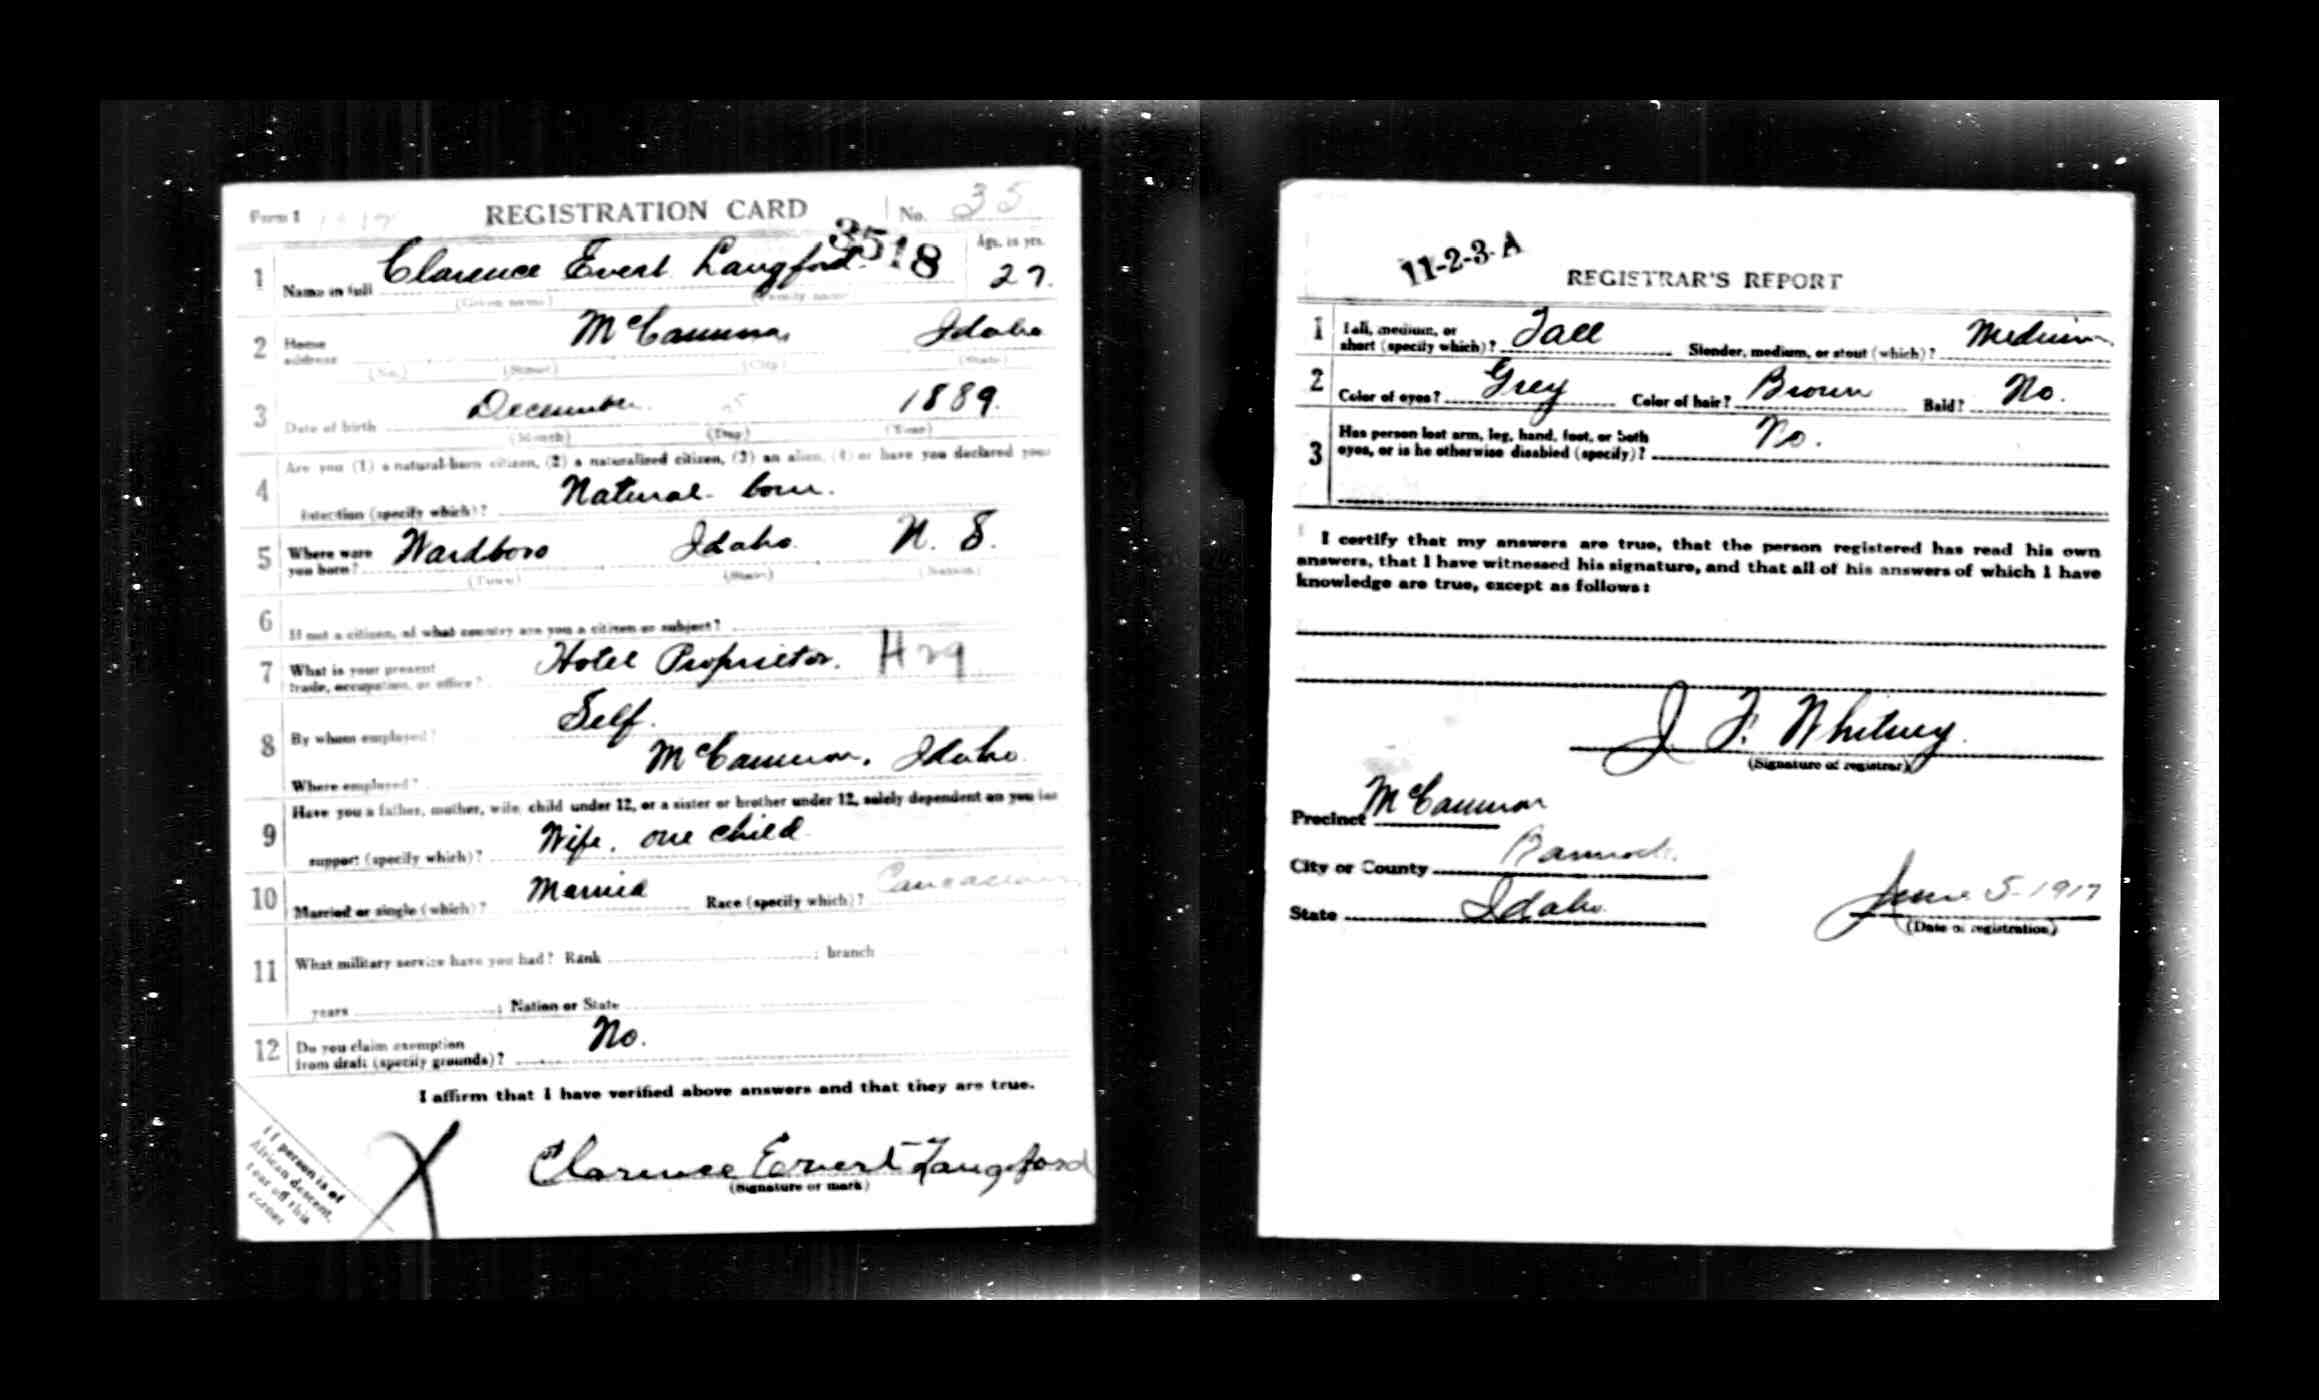 Form 1 REGISTRATION CARD No. 35
3518
1 Name in full Clarence Evert Langford Age, in yrs. 27.
(Given name) (Family name)
2 Home address McCammon, Idaho
(No.) (Street) (City) (State)
3 Date of birth December 25 1889.
(Month) (Day) (Year)
4 Are you (1) a natural-born citizen, (2) a naturalized citizen, (3) an alien, (4) or have you declared your
intention (specify which)? Natural-born.
5 Where were you born? Wardboro Idaho. U. S.
(Town) (State) (Nation)
6 If not a citizen, of what country are you a citizen or subject?
7 What is your present trade, occupation, or office? Hotel Proprietor. H 29
8 By whom employed? Self.
Where employed? McCammon, Idaho.
9 Have you a father, mother, wife, child under 12, or a sister or brother under 12, solely dependent on you for
support (specify which)? Wife, one child
10 Married or single (which)? Married Race (specify which)? Caucasian
11 What military service have you had? Rank ; branch
years ; Nation or State
12 Do you claim exemption from draft (specify grounds)? No.
I affirm that I have verified above answers and that they are true.
Clarence Evert Langford
(Signature or mark)
If person is of
African descent,
tear off this
corner
11-2-3-A
REGISTRAR'S REPORT
1 Tall, medium, or short (specify which)? Tall Slender, medium, or stout (which)? Medium
2 Color of eyes? Grey Color of hair? Brown Bald? No.
3 Has person lost arm, leg, hand, foot, or both
eyes, or is he otherwise disabled (specify)? No.
I certify that my answers are true, that the person registered has read his own
answers, that I have witnessed his signature, and that all of his answers of which I have
knowledge are true, except as follows:
J. F. Whitney
(Signature of registrar)
Precinct McCammon
City or County Bannock
State Idaho
June 5-1917
(Date of registration)